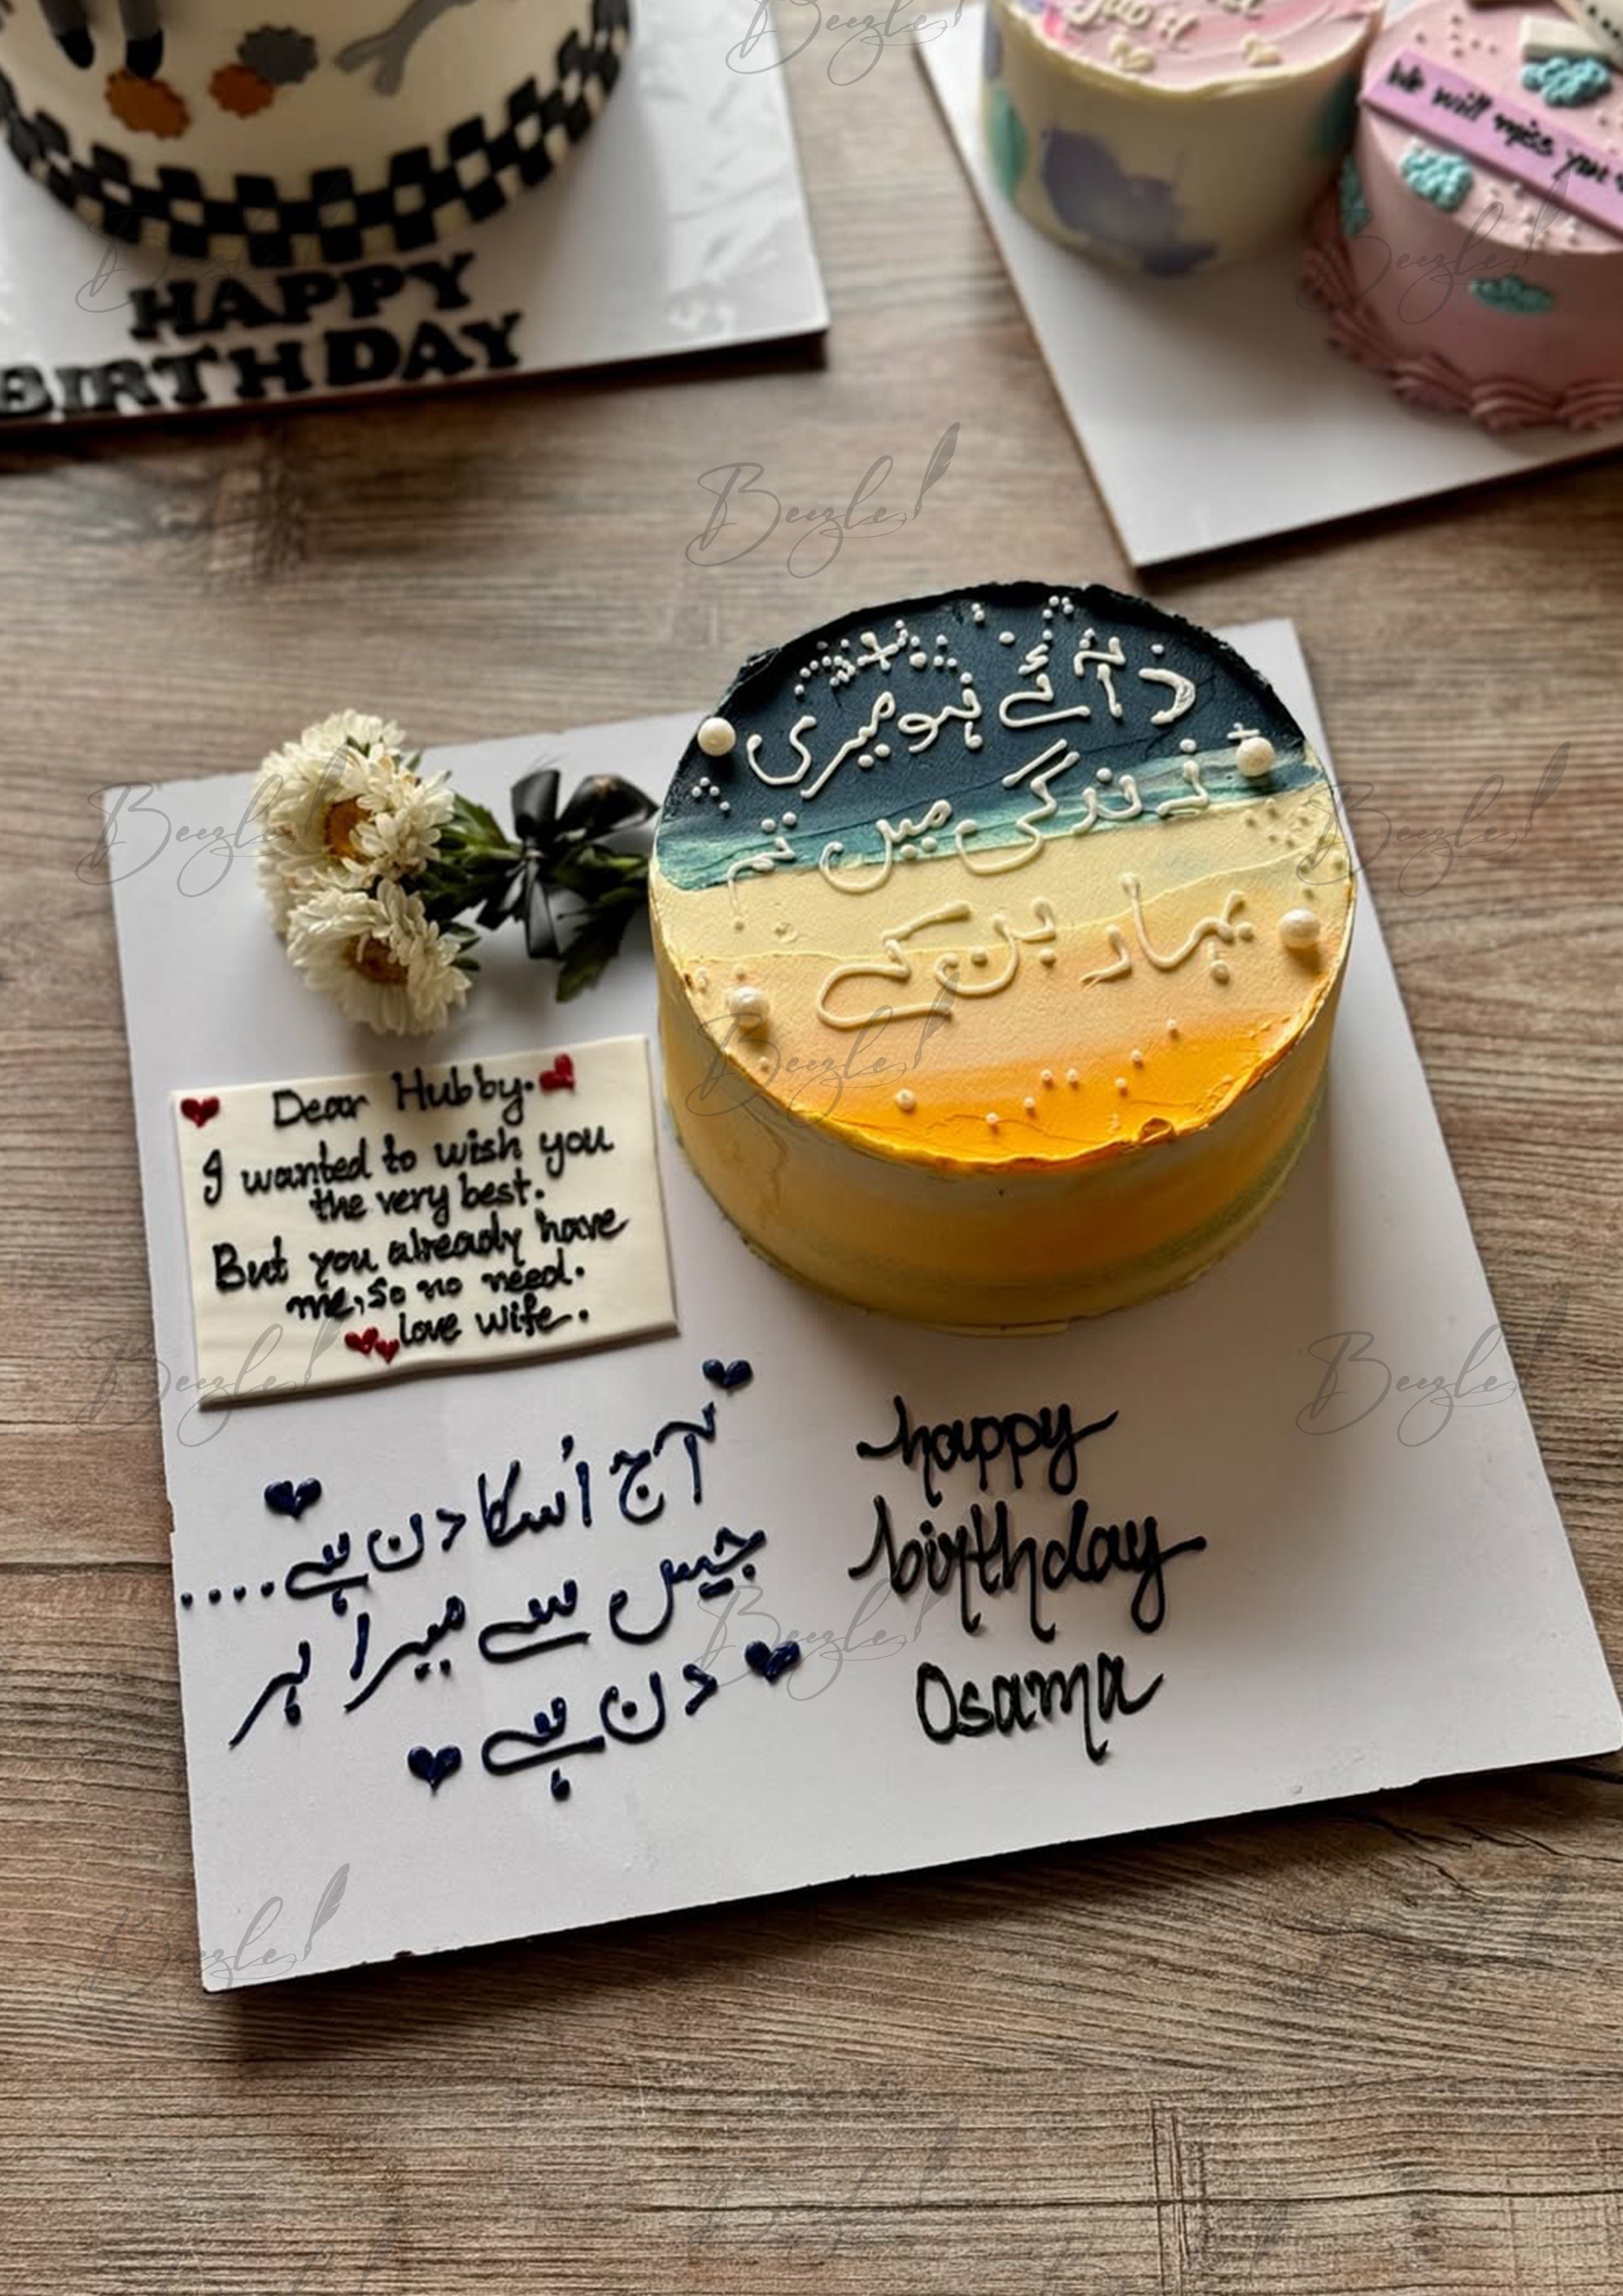 HAPPY
BIRTHDAY
We will miss you
آئے ہو میری
زندگی میں تم
بہار بن کے
Dear Hubby.
I wanted to wish you
the very best.
But you already have
me, so no need.
love wife.
آج اُسکا دن ہے....
جس سے میرا ہر
دن ہے
happy
birthday
Osama
Beezle